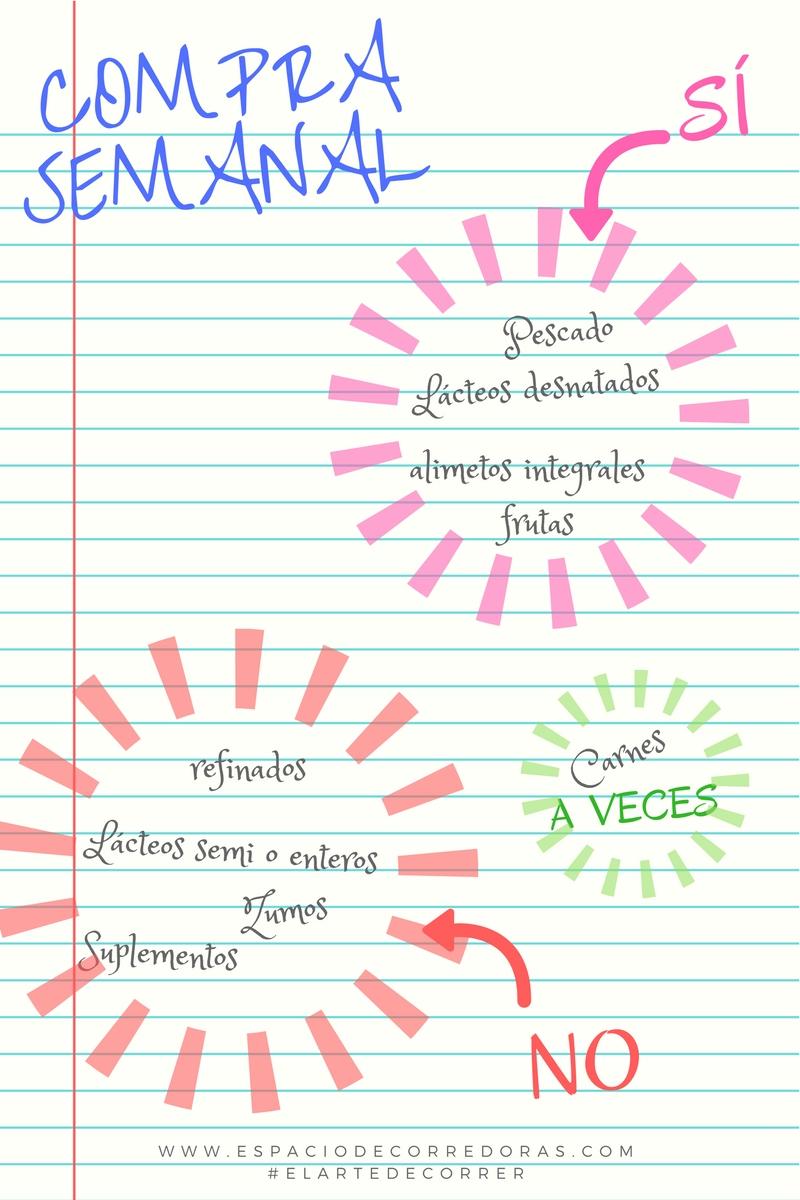 COMPRA
SEMANAL
SÍ
Pescado
Lácteos desnatados
alimetos integrales
frutas
refinados
Lácteos semi o enteros
Zumos
Suplementos
Carnes
A VECES
NO
WWW.ESPACIODECORREDORAS.COM
#ELARTEDECORRER